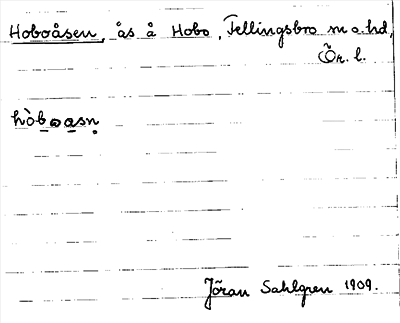 Hoboåsen, ås å Hobo, Fellingsbro sn o. hd,
Ör. l.
hòbωasn
Jöran Sahlgren 1909.